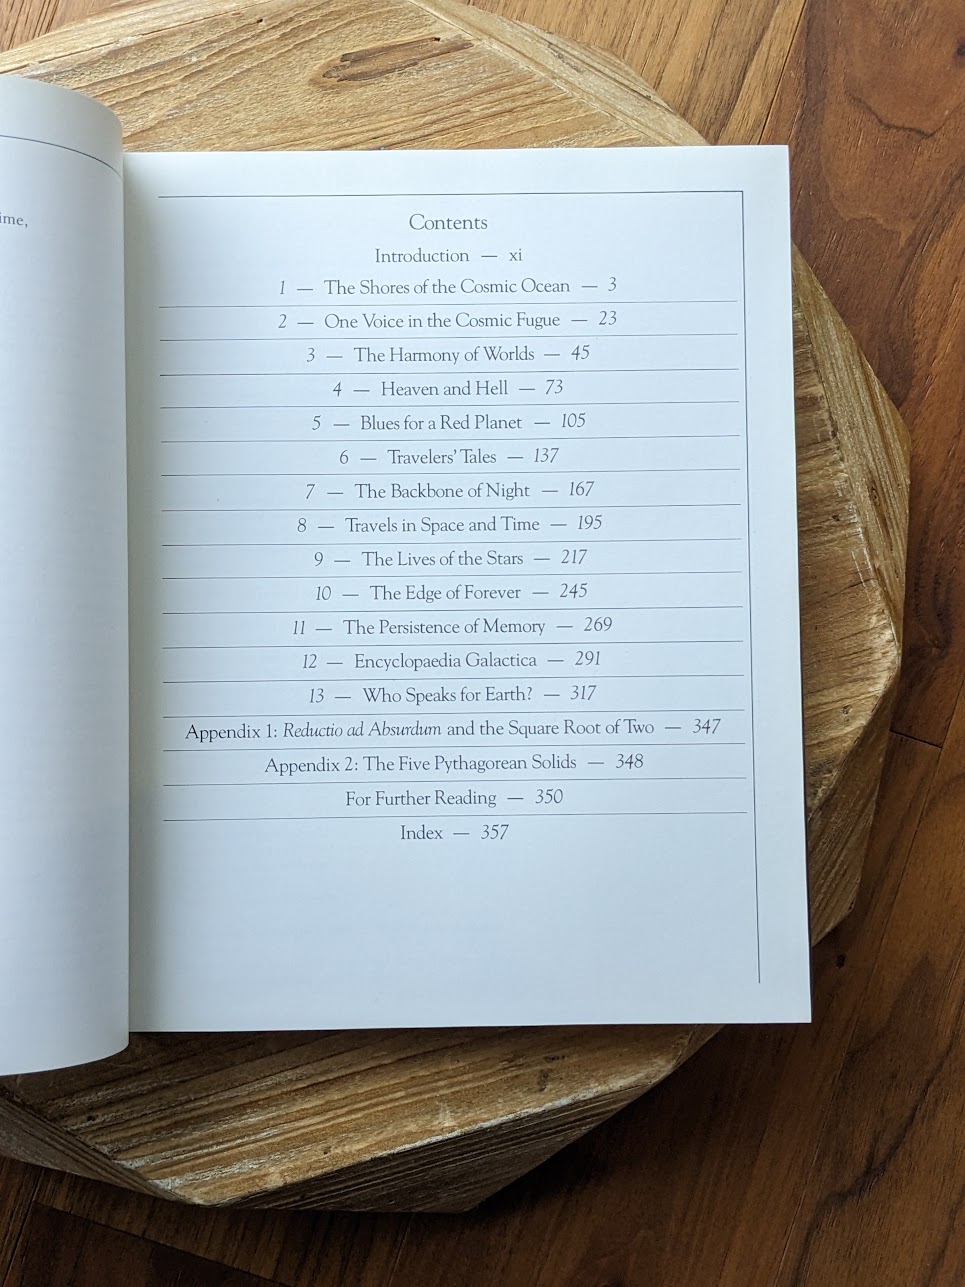 ime,
Contents
Introduction — xi
1 — The Shores of the Cosmic Ocean — 3
2 — One Voice in the Cosmic Fugue — 23
3 — The Harmony of Worlds — 45
4 — Heaven and Hell — 73
5 — Blues for a Red Planet — 105
6 — Travelers' Tales — 137
7 — The Backbone of Night — 167
8 — Travels in Space and Time — 195
9 — The Lives of the Stars — 217
10 — The Edge of Forever — 245
11 — The Persistence of Memory — 269
12 — Encyclopaedia Galactica — 291
13 — Who Speaks for Earth? — 317
Appendix 1: Reductio ad Absurdum and the Square Root of Two — 347
Appendix 2: The Five Pythagorean Solids — 348
For Further Reading — 350
Index — 357